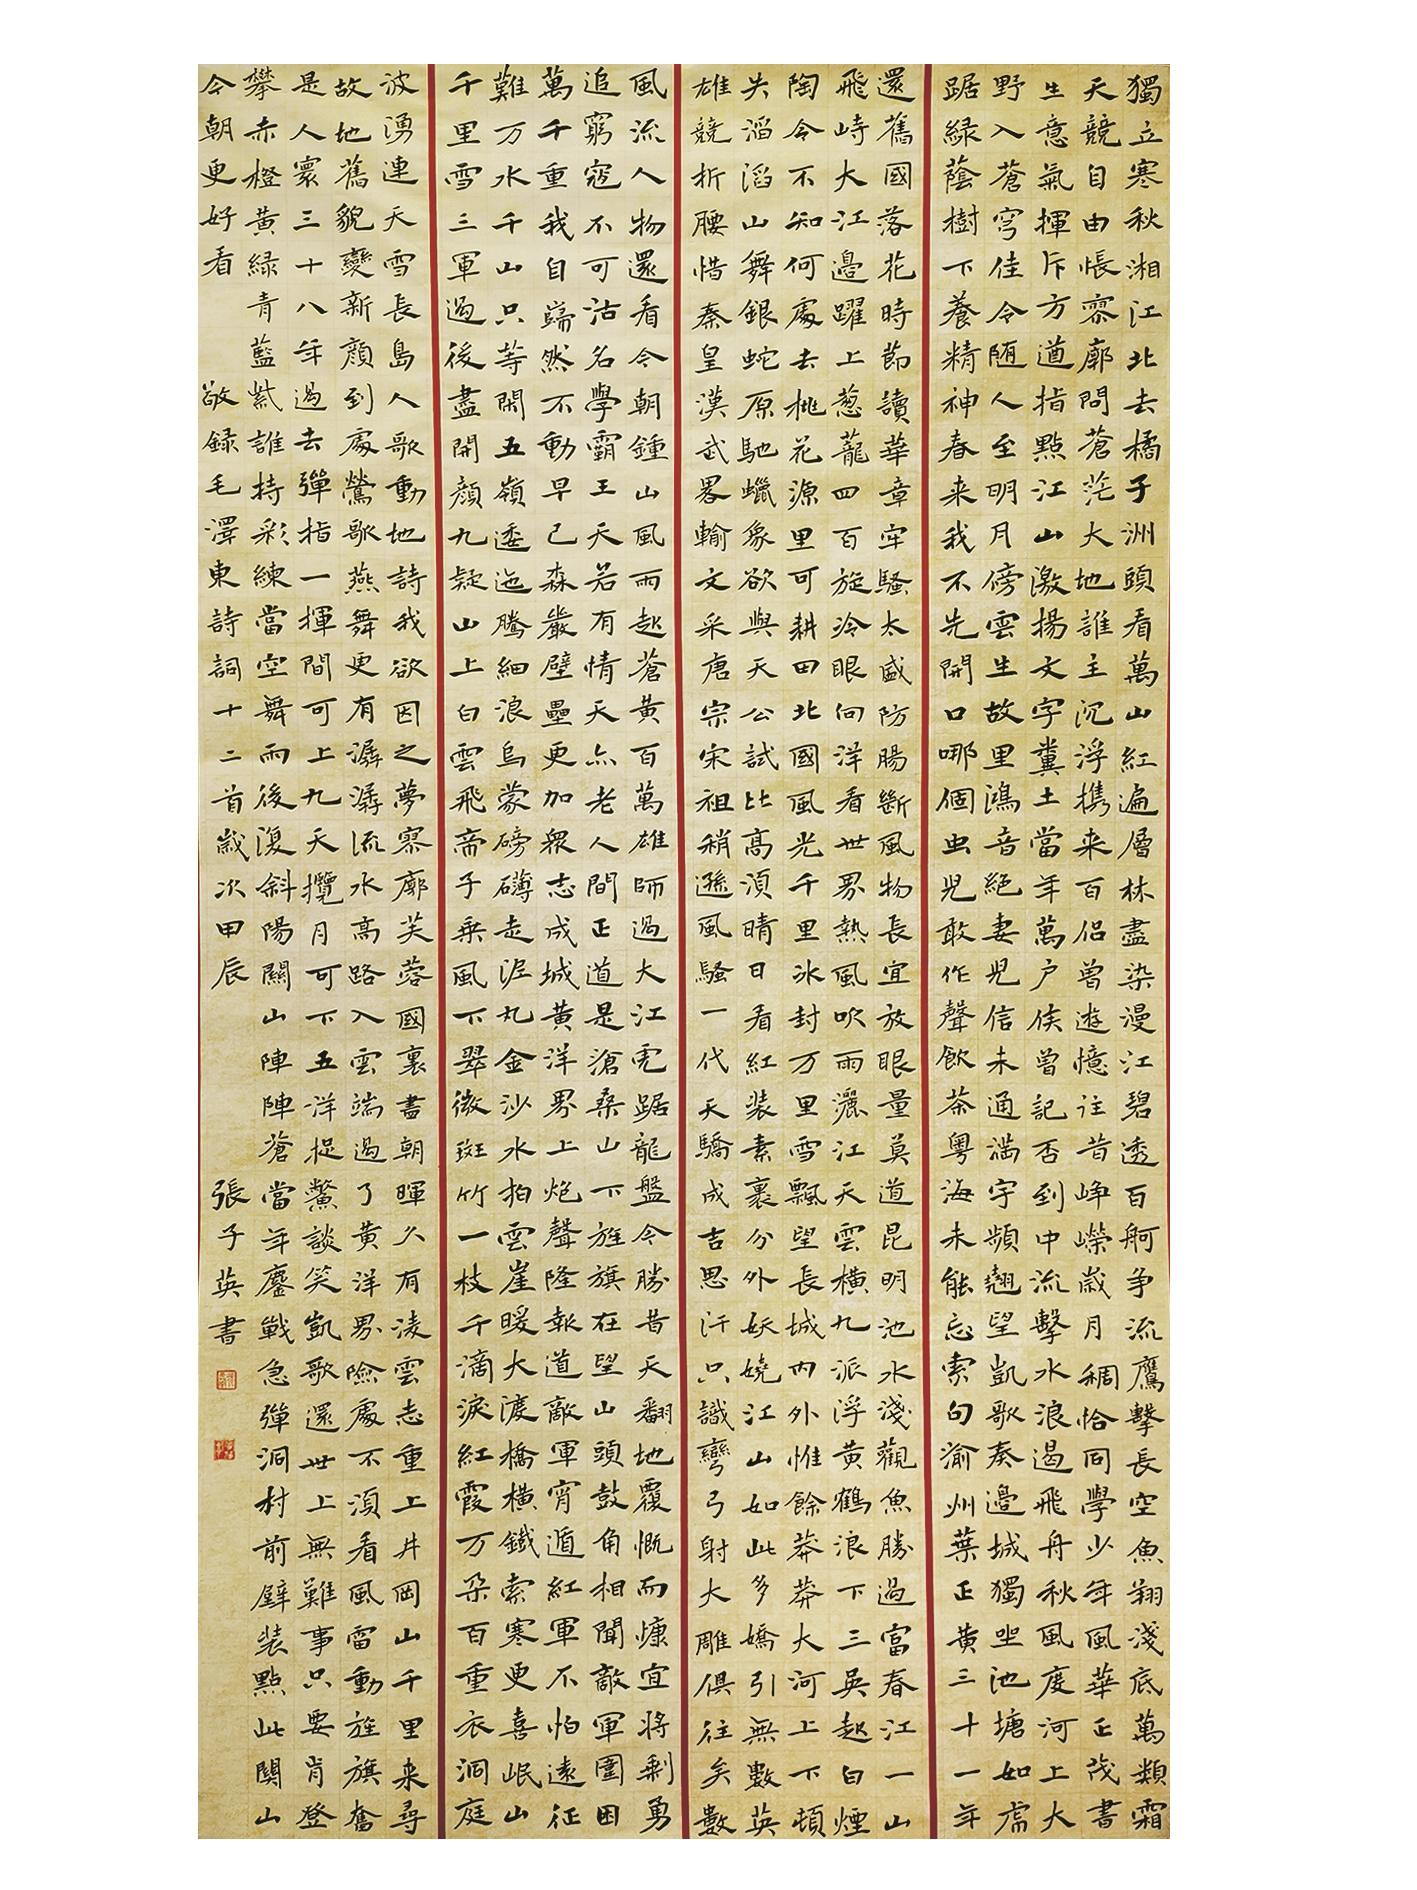 獨立寒秋湘江北去橘子洲頭看萬山紅遍層林盡染漫江碧透百舸争流鷹擊長空魚翔淺底萬類霜
天競自由悵寥廓問蒼茫大地誰主沉浮携来百侣曾遊憶往昔峥嶸歲月稠恰同學少年風華正茂書
生意氣揮斥方遒指點江山激揚文字糞土當年萬户侯曾記否到中流擊水浪遏飛舟秋風度河上大
野入蒼穹佳令随人至明月傍雲生故里鴻音絶妻兒信未通滿宇頻翹望凱歌奏邊城獨坐池塘如虎
踞緑蔭樹下養精神春来我不先開口哪個虫兒敢作聲飲茶粤海未能忘索句渝州葉正黄三十一年
還舊國落花時節讀華章牢騷太盛防腸斷風物長宜放眼量莫道昆明池水淺觀魚勝過富春江一山
飛峙大江邊躍上葱蘢四百旋冷眼向洋看世界熱風吹雨灑江天雲横九派浮黄鶴浪下三吴起白煙
陶令不知何處去桃花源里可耕田北國風光千里冰封万里雪飄望長城内外惟餘莽莽大河上下頓
失滔滔山舞銀蛇原馳蠟象欲與天公試比高須晴日看紅装素裹分外妖嬈江山如此多嬌引無數英
雄競折腰惜秦皇漢武畧輸文采唐宗宋祖稍遜風騷一代天驕成吉思汗只識彎弓射大雕俱往矣數
風流人物還看今朝鍾山風雨起蒼黄百萬雄師過大江虎踞龍盤今勝昔天翻地覆慨而慷宜將剩勇
追窮寇不可沽名學霸王天若有情天亦老人間正道是滄桑山下旌旗在望山頭鼓角相聞敵軍圍困
萬千重我自巋然不動早已森嚴壁壘更加衆志成城黄洋界上炮聲隆報道敵軍宵遁紅軍不怕遠征
難万水千山只等閑五嶺逶迤騰細浪烏蒙磅礴走泥丸金沙水拍雲崖暖大渡橋横鐵索寒更喜岷山
千里雪三軍過後盡開顔九疑山上白雲飛帝子乘風下翠微斑竹一枝千滴淚紅霞万朵百重衣洞庭
波湧連天雪長島人歌動地詩我欲因之夢寥廓芙蓉國裏盡朝暉久有凌雲志重上井岡山千里来尋
故地舊貌變新顔到處鶯歌燕舞更有潺潺流水高路入雲端過了黄洋界險處不須看風雷動旌旗奮
是人寰三十八年過去彈指一揮間可上九天攬月可下五洋捉鱉談笑凱歌還世上無難事只要肯登
攀赤橙黄緑青藍紫誰持彩練當空舞雨後復斜陽關山陣陣蒼當年鏖戰急彈洞村前壁装點此關山
今朝更好看 敬録毛澤東詩詞十二首歲次甲辰 張子英書